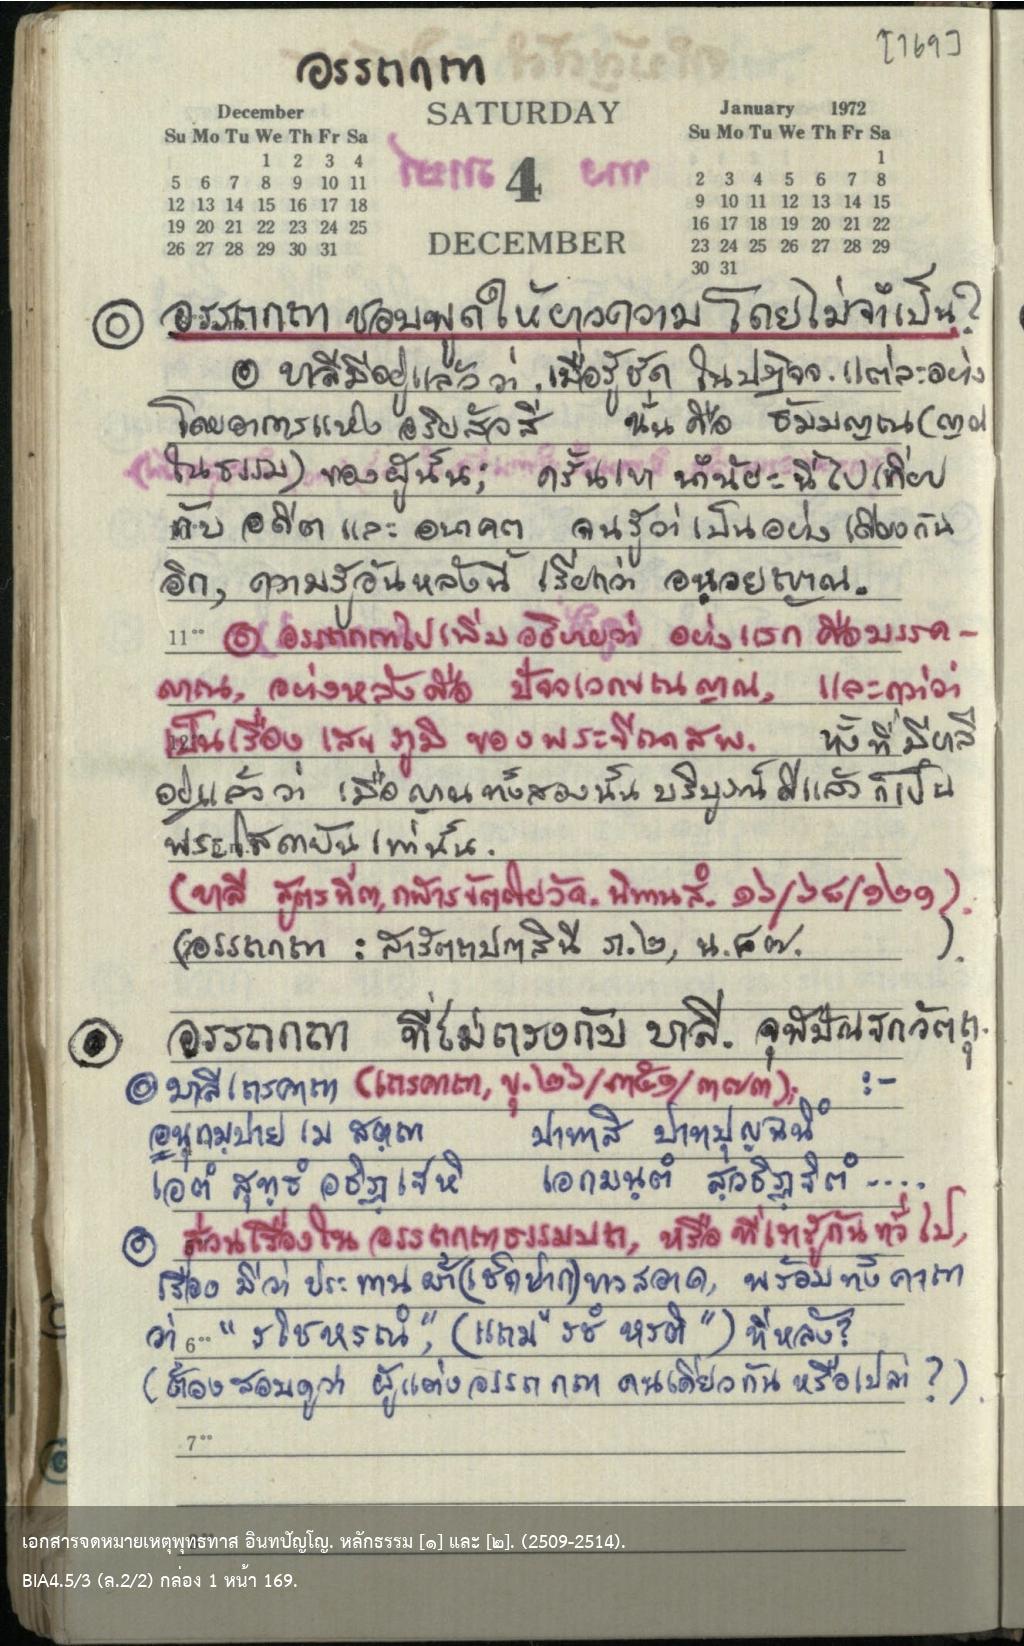 [169]
อรรถกถา
December
Su Mo Tu We Th Fr Sa
1 2 3 4
5 6 7 8 9 10 11
12 13 14 15 16 17 18
19 20 21 22 23 24 25
26 27 28 29 30 31
SATURDAY
4
DECEMBER
January 1972
Su Mo Tu We Th Fr Sa
1
2 3 4 5 6 7 8
9 10 11 12 13 14 15
16 17 18 19 20 21 22
23 24 25 26 27 28 29
30 31
อรรถกถา ชอบพูดให้ยาวความ โดยไม่จำเป็น?
๑ บาลีมีอยู่แล้วว่า, เมื่อรู้ชัด ในปฏิจจ. แต่ละอย่าง
โดยอาการแห่ง อริยสัจสี่ นั้น คือ ธัมมญาณ (ญาณ
ในธรรม) ของผู้นั้น; ครั้นเขา นำนัยะนี้ไปเทียบ
กับ อดีต และ อนาคต จนรู้ว่าเป็นอย่างเดียวกัน
อีก, ความรู้อันหลังนี้ เรียกว่า อนฺวยญาณ.
11°° ๑ อรรถกถาไปเพิ่มอธิบายว่า อย่างแรก คือมรรค-
ญาณ, อย่างหลังคือ ปัจจเวกขณญาณ, และกว่าว่า
เป็นเรื่อง เสขภูมิ ของพระขีณาสพ. ทั้งที่มีบาลี
อยู่แล้วว่า เมื่อญาณทั้งสองนั้นบริบูรณ์ดีแล้ว ก็เป็น
พระโสดาบันเท่านั้น.
(บาลี สูตรที่๓, กฬารขัตติยวัค. นิทานสํ. ๑๖/๖๘/๑๒๑).
(อรรถกถา : สารัตถปกาสินี ภ.๒, น.๘๗. ).
อรรถกถา ที่ไม่ตรงกับ บาลี. จุฬปัณฑกวัตถุ.
บาลีเถรคาถา (เถรคาถา, ขุ.๒๖/๓๕๑/๓๗๓); :-
อนุกมฺปาย เม สตฺถา ปาทาสิ ปาทปุญฺฉนึ
เอตํ สุทฺธํ อธิฏฺเฐหิ เอกมนฺตํ สฺวธิฏฺฐิตํ ....
ส่วนเรื่องใน อรรถกถาธรรมบท, หรือ ที่เขารู้กันทั่วไป,
เรื่อง มีว่า ประทานผ้า(เช็ดปาก)ขาวสอาด, พร้อมทั้งคาถา
ว่า 6°° “ รโชหรณํ”, (แถม “ รชํ หรติ ”) ทีหลัง?
(ต้องสอบดูว่า ผู้แต่งอรรถกถา คนเดียวกัน หรือเปล่า ?).
7°°
เอกสารจดหมายเหตุพุทธทาส อินทปัญโญ. หลักธรรม [๑] และ [๒]. (2509-2514).
BIA4.5/3 (ล.2/2) กล่อง 1 หน้า 169.